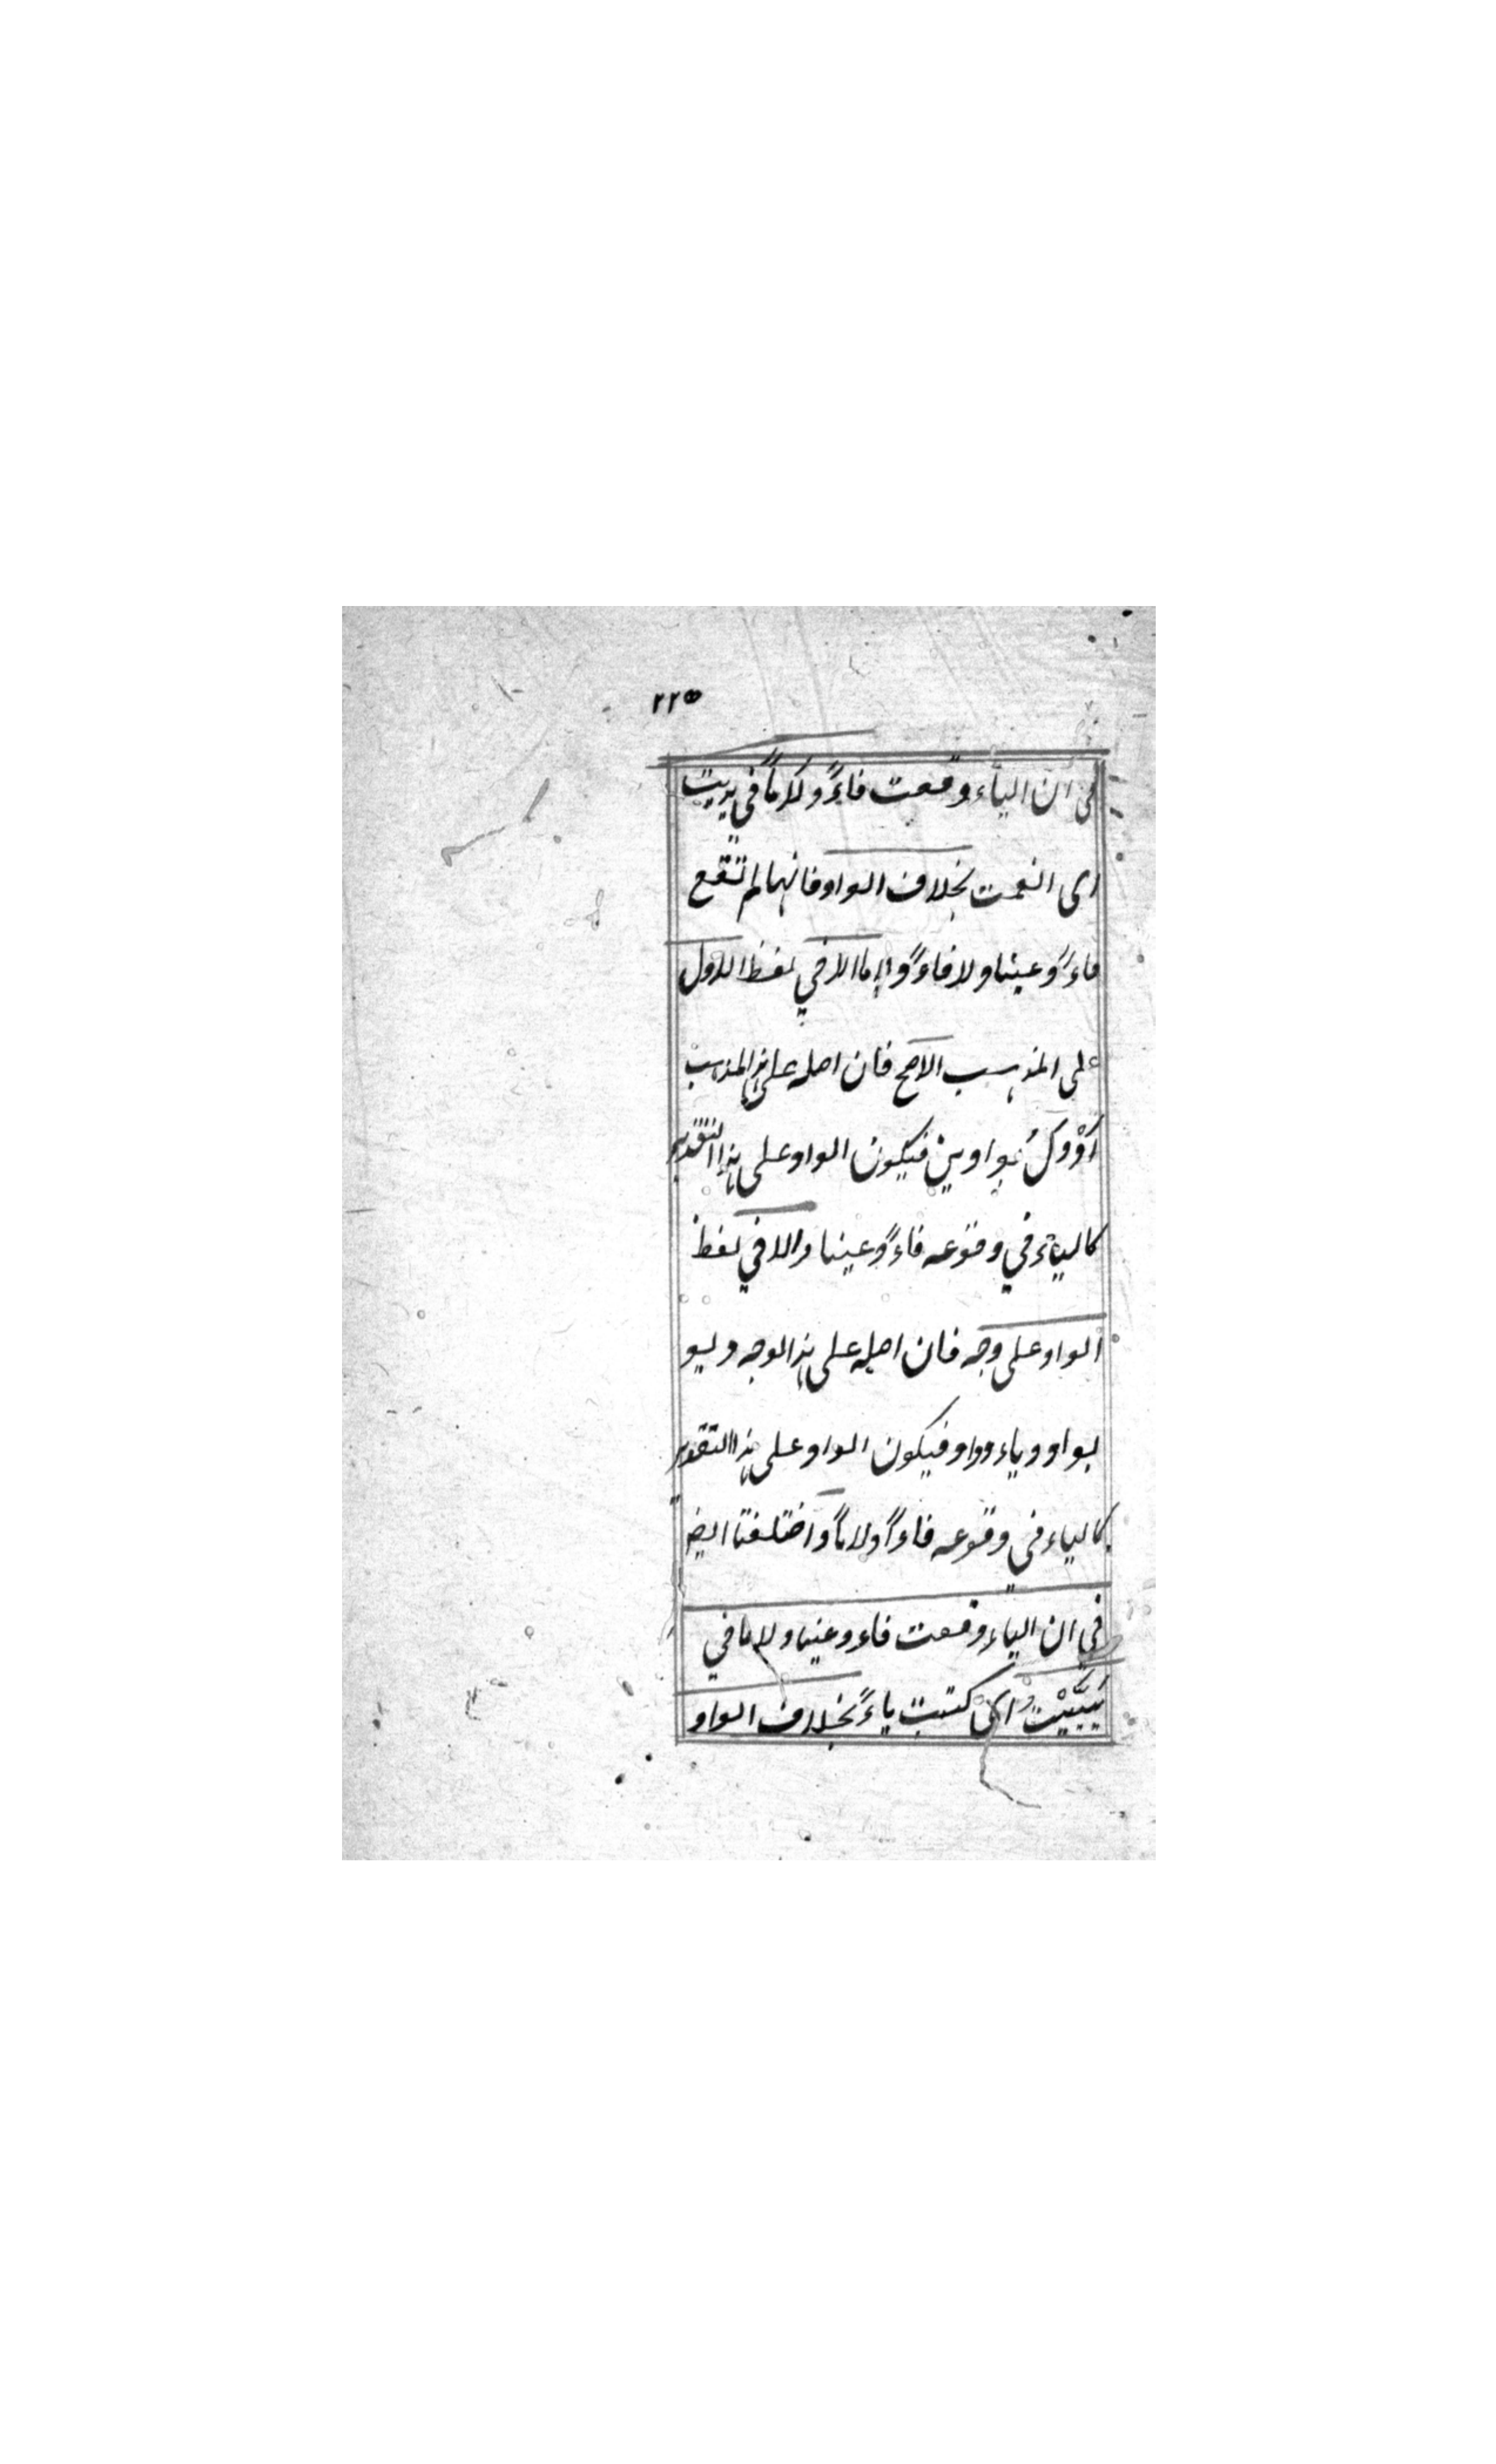 ٢٢٥
في ان الياء وقعت فاءً ولاماً في يديت
اى انعمت بخلاف الواو فانها لم تقع
فاءً وعينا ولا فاءً ولاما الا في لفظ الاول
على المذهب الاصح فان اصله على هذا المذهب
اَوْوَلُ بواوين فيكون الواو على هذا التقدير
كالياء في وقوعه فاءً وعينا والا في لفظ
الواو على وجه فان اصله على هذا الوجه ويو
بواو وياء وواو فيكون الواو على هذا التقدير
كالياء في وقوعه فاءً ولاماً واختلفتا ايض
في ان الياء وقعت فاء وعينا ولاما في
يَيَّيْتُ اى كتبت ياءً بخلاف الواو